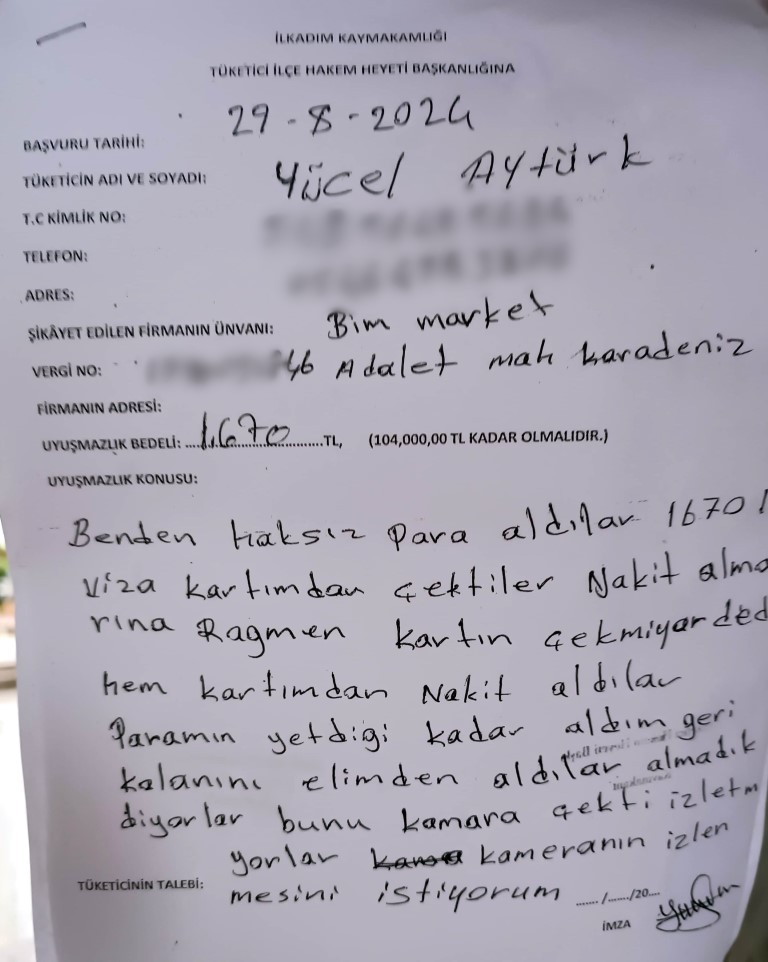 İLKADIM KAYMAKAMLIĞI
TÜKETİCİ İLÇE HAKEM HEYETİ BAŞKANLIĞINA
BAŞVURU TARİHİ: 29-8-2024
TÜKETİCİN ADI VE SOYADI: Yücel Aytürk
T.C KİMLİK NO:
TELEFON:
ADRES:
ŞİKÂYET EDİLEN FİRMANIN ÜNVANI: Bim market
VERGİ NO: 46 Adalet mah karadeniz
FİRMANIN ADRESİ:
UYUŞMAZLIK BEDELİ: ....1.670..............TL, (104,000,00 TL KADAR OLMALIDIR.)
UYUŞMAZLIK KONUSU:
Benden haksız para aldılar 1670
Viza kartımdan çektiler Nakit alma
rına Ragmen kartın çekmiyor ded
hem kartımdan Nakit aldılar
Paramın yetdigi kadar aldım geri
kalanını elimden aldılar almadık
diyorlar bunu kamara çekti izletm
yorlar kameranın izlen
TÜKETİCİNİN TALEBİ: mesini istiyorum ....../......./20....
İMZA